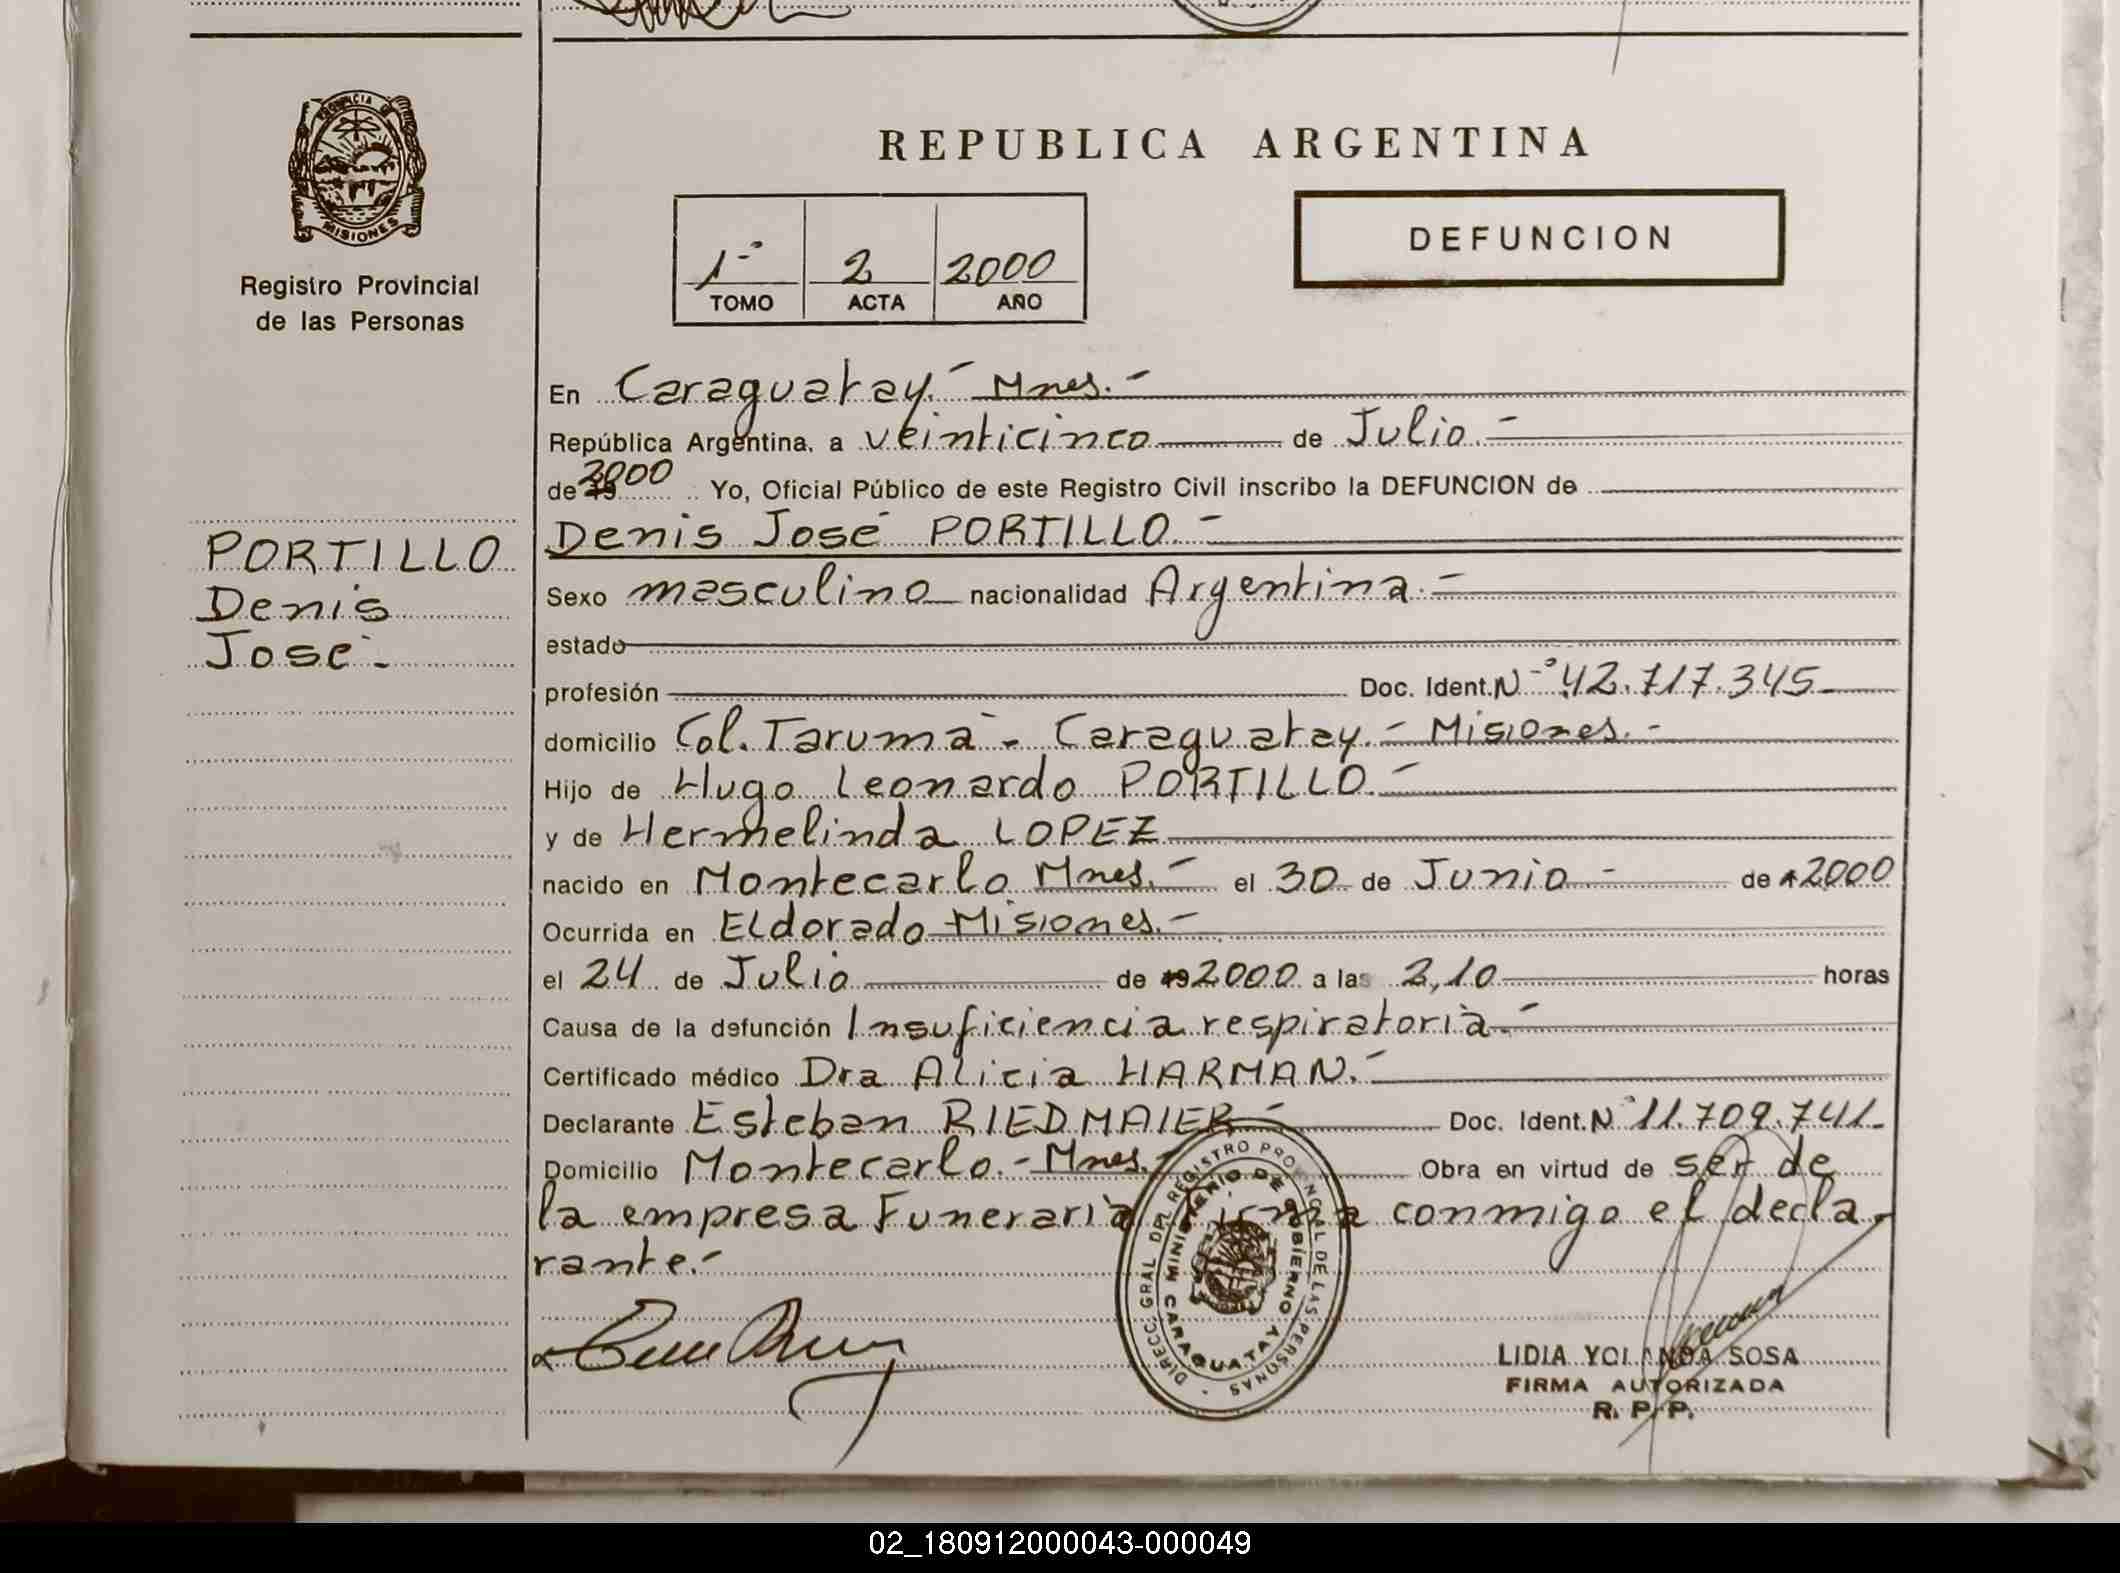 PROVINCIA DE
MISIONES
Registro Provincial
de las Personas
PORTILLO
Denis
José.-
REPUBLICA ARGENTINA
1º 2 2000
TOMO ACTA AÑO
DEFUNCION
En Caraguatay.- Mnes.-
República Argentina, a veinticinco de Julio.-
de 19 2000 Yo, Oficial Público de este Registro Civil inscribo la DEFUNCION de
Denis José PORTILLO.-
Sexo masculino nacionalidad Argentina.-
estado
profesión Doc. Ident. Nº 42.717.345
domicilio Col. Tarumá - Caraguatay.- Misiones.-
Hijo de Hugo Leonardo PORTILLO.-
y de Hermelinda LOPEZ
nacido en Montecarlo Mnes.- el 30 de Junio - de 2000
Ocurrida en Eldorado Misiones.-
el 24 de Julio de 19 2000 a las 2,10 horas
Causa de la defunción Insuficiencia respiratoria.-
Certificado médico Dra Alicia HARMAN.-
Declarante Esteban RIEDMAIER- Doc. Ident. Nº 11.709.741-
Domicilio Montecarlo.- Mnes.- Obra en virtud de ser de
la empresa Funeraria Firma conmigo el decla-
rante.-
DIRECC. GRAL DEL REGISTRO PROVINCIAL DE LAS PERSONAS
MINISTERIO DE GOBIERNO
CARAGUATAY
LIDIA YOLANDA SOSA
FIRMA AUTORIZADA
R. P. P.
02_180912000043-000049